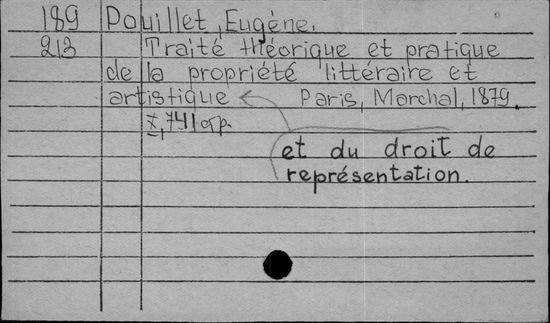 189 Pouillet, Eugène.
213 Traité théorique et pratique
de la propriété littéraire et
artistique Paris, Marchal, 1879.
X, 741 стр.
et du droit de
représentation.